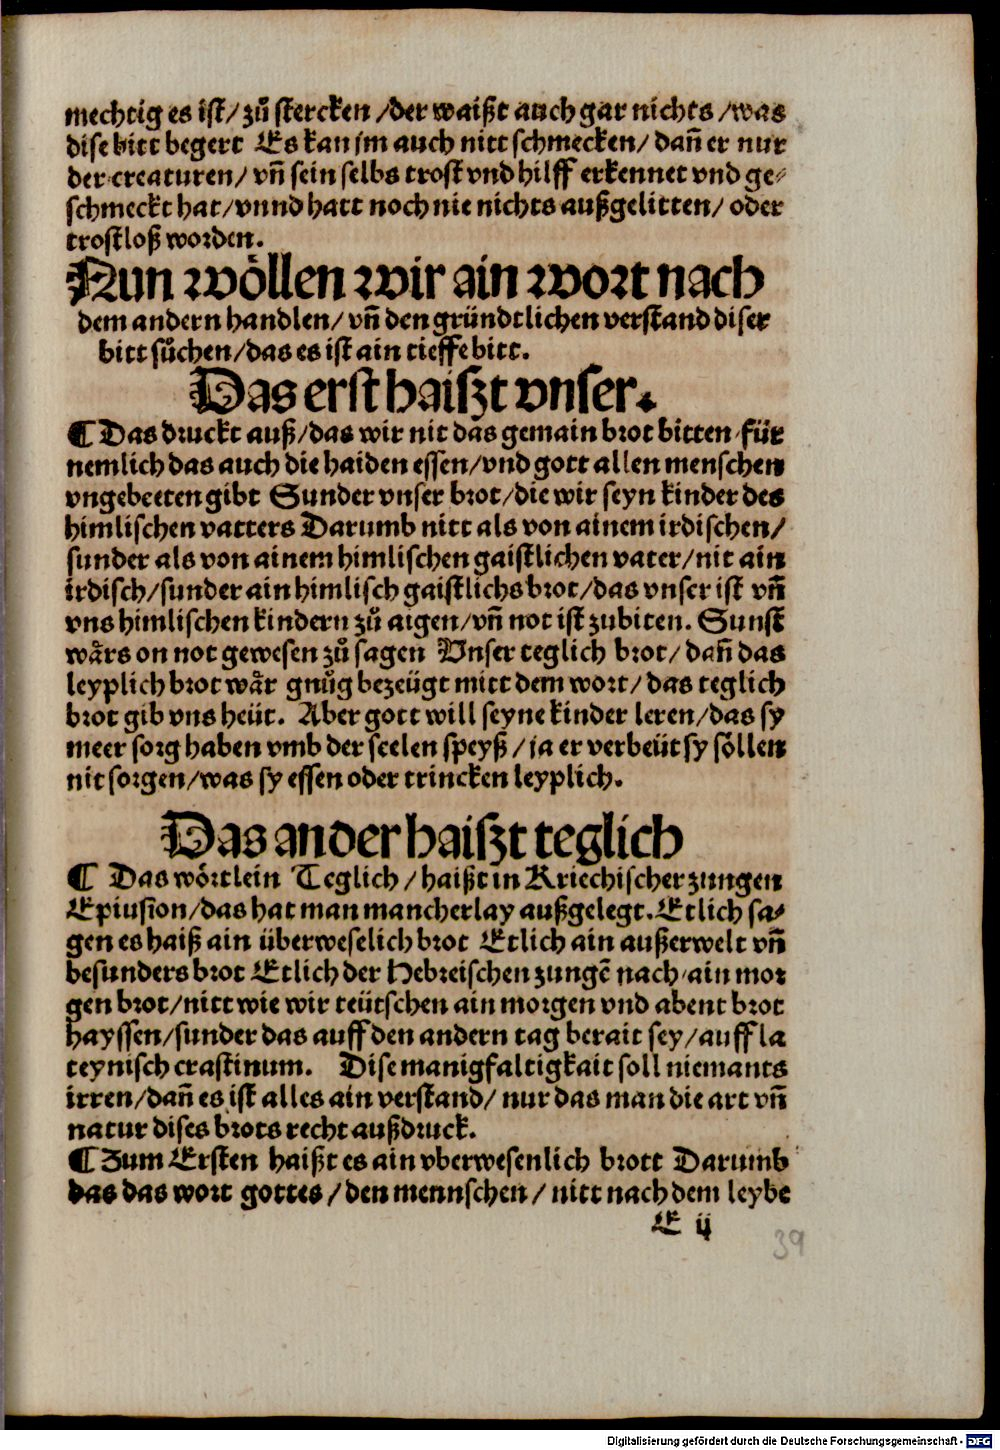 mechtig es ist/ zuͦ stercken /der waißt auch gar nichts /was
dise bitt begert Es kan jm auch nitt schmecken/ dañ er nur
der creaturen/ vñ sein selbs trost vnd hilff erkennet vnd ge⸗
schmeckt hat/ vnnd hatt noch nie nichts außgelitten/ oder
trostloß worden.
Nun wöllen wir ain wort nach
dem andern handlen/ vñ den gründtlichen verstand diser
bitt suͦchen/das es ist ain tieffe bitt.
Das erst haiszt vnser.
¶ Das druckt auß/das wir nit das gemain brot bitten für
nemlich das auch die haiden essen/vnd gott allen menschen
vngebeeten gibt Sunder vnser brot/die wir seyn kinder des
himlischen vatters Darumb nitt als von ainem irdischen/
sunder als von ainem himlischen gaistlichen vater/nit ain
irdisch/sunder ain himlisch gaistlichs brot/das vnser ist vñ
vns himlischen kindern zuͦ aigen/vñ not ist zubiten. Sunst
wårs on not gewesen zuͦ sagen Vnser teglich brot/ dañ das
leyplich brot wår gnuͦg bezeügt mitt dem wort/ das teglich
brot gib vns heüt. Aber gott will seyne kinder leren/das sy
meer sorg haben vmb der seelen speyß/ ja er verbeüt sy söllen
nit sorgen/was sy essen oder trincken leyplich.
Das ander haiszt teglich
¶ Das wörtlein Teglich / haißt in Kriechischer zungen
Epiusion/das hat man mancherlay außgelegt. Etlich sa⸗
gen es haiß ain überweselich brot Etlich ain außerwelt vñ
besunders brot Etlich der Hebreischen zungē nach ain mor
gen brot/nitt wie wir teütschen ain morgen vnd abent brot
hayssen/sunder das auff den andern tag berait sey/auff la
teynisch crastinum. Dise manigfaltigkait soll niemants
irren/dañ es ist alles ain verstand/ nur das man die art vñ
natur dises brots recht außdruck.
¶ Zum Ersten haißt es ain vberwesenlich brott Darumb
das das wort gottes /den mennschen/ nitt nach dem leybe
E ij
39
Digitalisierung gefördert durch die Deutsche Forschungsgemeinschaft - DFG